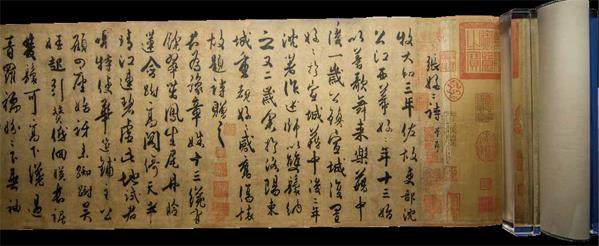 張好好詩
牧大和三年佐故吏部沈
公江西幕好好年十三始
以善歌舞来樂籍中
後一歲公鎮宣城復置
好好於宣城籍中後二年
沈著作述師以雙鬟納
之又二歲余於洛陽東
城重覩好好感舊傷懷
故題詩贈之
君為豫章姝十三纔有
餘翠茁鳳生尾丹臉
蓮含跗高閣倚天半
晴江連碧虛此地試君
唱特使華筵鋪主公
顧四座始訝来踟躕吳
娃起引贊低佪暎長裾
雙鬟可高下纔過
青羅襦盼盼下垂袖